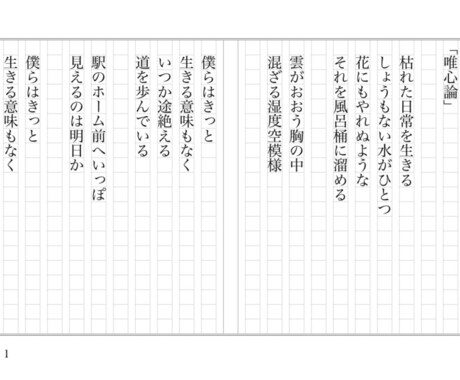 「唯心論」
枯れた日常を生きる
しょうもない水がひとつ
花にもやれぬような
それを風呂桶に溜める
雲がおおう胸の中
混ざる湿度空模様
僕らはきっと
生きる意味もなく
いつか途絶える
道を歩んでいる
駅のホーム前へいっぽ
見えるのは明日か
僕らはきっと
生きる意味もなく
1